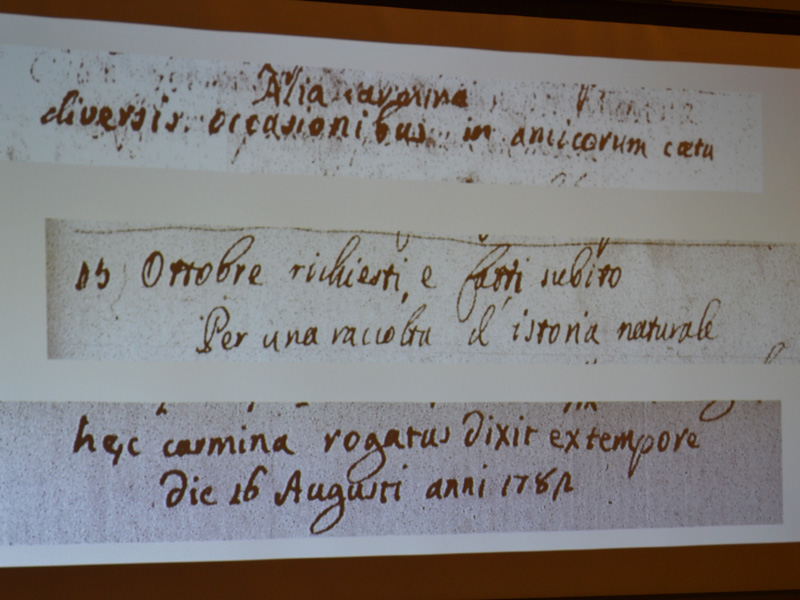 Alia carmina
diversis occasionibus in amicorum cœtu
Ottobre richiesti, e fatti subito
Per una raccolta d'istoria naturale
hęc carmina rogatus dixit extempore
die 16 Augusti anni